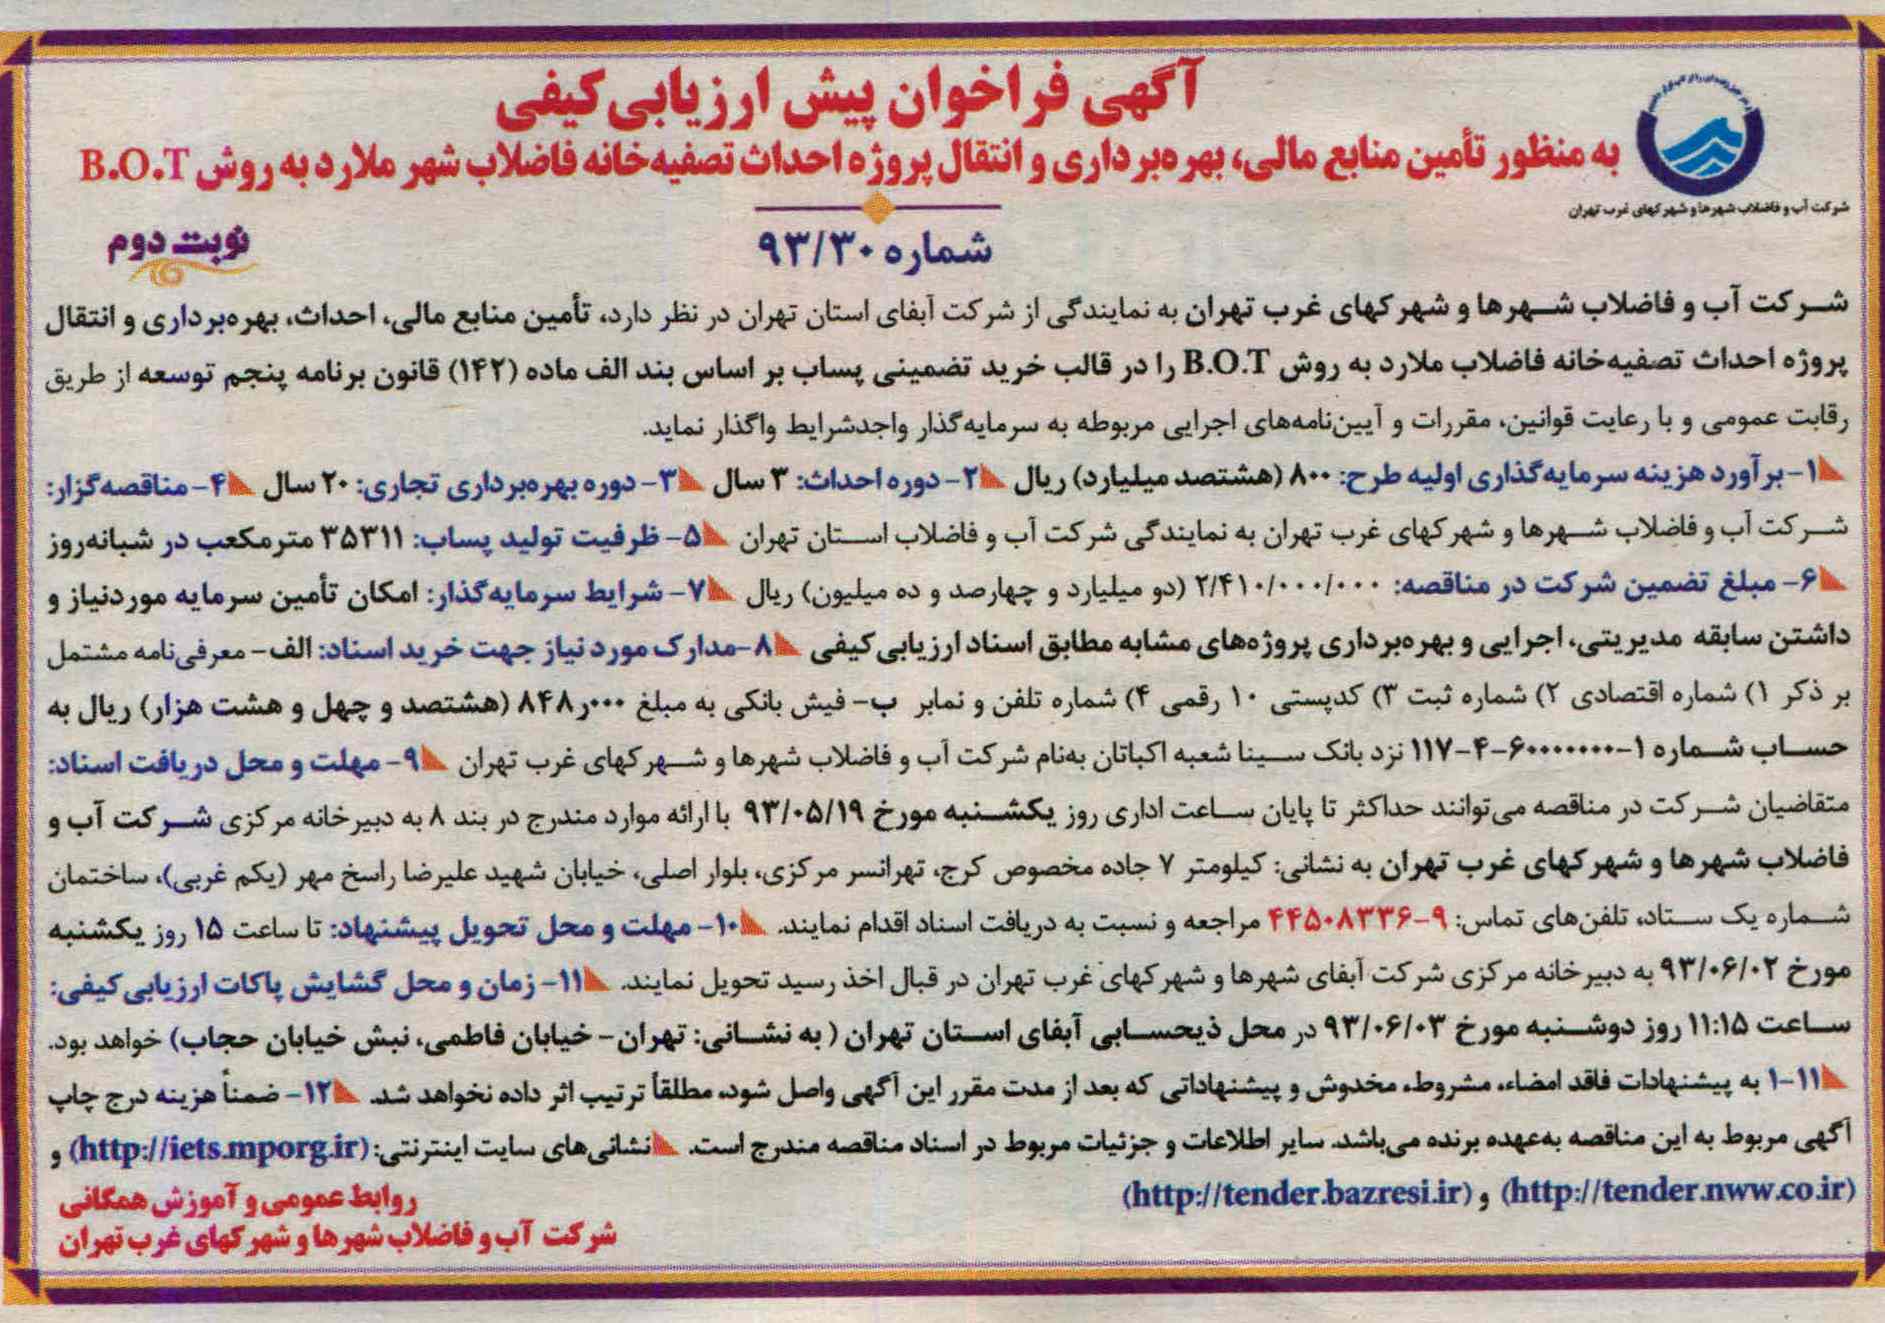 آگهی فراخوان پیش ارزیابی کیفی
به منظور تأمین منابع مالی، بهره‌برداری و انتقال پروژه احداث تصفیه‌خانه فاضلاب شهر ملارد به روش B.O.T
شرکت آب و فاضلاب شهرها و شهرکهای غرب تهران
شماره ۹۳/۳۰
نوبت دوم
شرکت آب و فاضلاب شهرها و شهرکهای غرب تهران به نمایندگی از شرکت آبفای استان تهران در نظر دارد، تأمین منابع مالی، احداث، بهره‌برداری و انتقال
پروژه احداث تصفیه‌خانه فاضلاب ملارد به روش B.O.T را در قالب خرید تضمینی پساب بر اساس بند الف ماده (۱۴۲) قانون برنامه پنجم توسعه از طریق
رقابت عمومی و با رعایت قوانین، مقررات و آیین‌نامه‌های اجرایی مربوطه به سرمایه‌گذار واجدشرایط واگذار نماید.
۱- برآورد هزینه سرمایه‌گذاری اولیه طرح: ۸۰۰ (هشتصد میلیارد) ریال ۲- دوره احداث: ۳ سال ۳- دوره بهره‌برداری تجاری: ۲۰ سال ۴- مناقصه‌گزار:
شرکت آب و فاضلاب شهرها و شهرکهای غرب تهران به نمایندگی شرکت آب و فاضلاب استان تهران ۵- ظرفیت تولید پساب: ۳۵۳۱۱ مترمکعب در شبانه‌روز
۶- مبلغ تضمین شرکت در مناقصه: ۲/۴۱۰/۰۰۰/۰۰۰ (دو میلیارد و چهارصد و ده میلیون) ریال ۷- شرایط سرمایه‌گذار: امکان تأمین سرمایه موردنیاز و
داشتن سابقه مدیریتی، اجرایی و بهره‌برداری پروژه‌های مشابه مطابق اسناد ارزیابی کیفی ۸- مدارک مورد نیاز جهت خرید اسناد: الف- معرفی‌نامه مشتمل
بر ذکر ۱) شماره اقتصادی ۲) شماره ثبت ۳) کدپستی ۱۰ رقمی ۴) شماره تلفن و نمابر ب- فیش بانکی به مبلغ ۸۴۸٫۰۰۰ (هشتصد و چهل و هشت هزار) ریال به
حساب شماره ۱-۶۰۰۰۰۰۰۰-۴-۱۱۷ نزد بانک سینا شعبه اکباتان به‌نام شرکت آب و فاضلاب شهرها و شهرکهای غرب تهران ۹- مهلت و محل دریافت اسناد:
متقاضیان شرکت در مناقصه می‌توانند حداکثر تا پایان ساعت اداری روز یکشنبه مورخ ۹۳/۰۵/۱۹ با ارائه موارد مندرج در بند ۸ به دبیرخانه مرکزی شرکت آب و
فاضلاب شهرها و شهرکهای غرب تهران به نشانی: کیلومتر ۷ جاده مخصوص کرج، تهرانسر مرکزی، بلوار اصلی، خیابان شهید علیرضا راسخ مهر (یکم غربی)، ساختمان
شماره یک ستاد، تلفن‌های تماس: ۹-۴۴۵۰۸۳۳۶ مراجعه و نسبت به دریافت اسناد اقدام نمایند. ۱۰- مهلت و محل تحویل پیشنهاد: تا ساعت ۱۵ روز یکشنبه
مورخ ۹۳/۰۶/۰۲ به دبیرخانه مرکزی شرکت آبفای شهرها و شهرکهای غرب تهران در قبال اخذ رسید تحویل نمایند. ۱۱- زمان و محل گشایش پاکات ارزیابی کیفی:
ساعت ۱۱:۱۵ روز دوشنبه مورخ ۹۳/۰۶/۰۳ در محل ذیحسابی آبفای استان تهران ( به نشانی: تهران- خیابان فاطمی، نبش خیابان حجاب) خواهد بود.
۱-۱۱ به پیشنهادات فاقد امضاء، مشروط، مخدوش و پیشنهاداتی که بعد از مدت مقرر این آگهی واصل شود، مطلقاً ترتیب اثر داده نخواهد شد. ۱۲- ضمناً هزینه درج چاپ
آگهی مربوط به این مناقصه به‌عهده برنده می‌باشد. سایر اطلاعات و جزئیات مربوط در اسناد مناقصه مندرج است. نشانی‌های سایت اینترنتی: (http://iets.mporg.ir) و
(http://tender.nww.co.ir) و (http://tender.bazresi.ir)
روابط عمومی و آموزش همگانی
شرکت آب و فاضلاب شهرها و شهرکهای غرب تهران